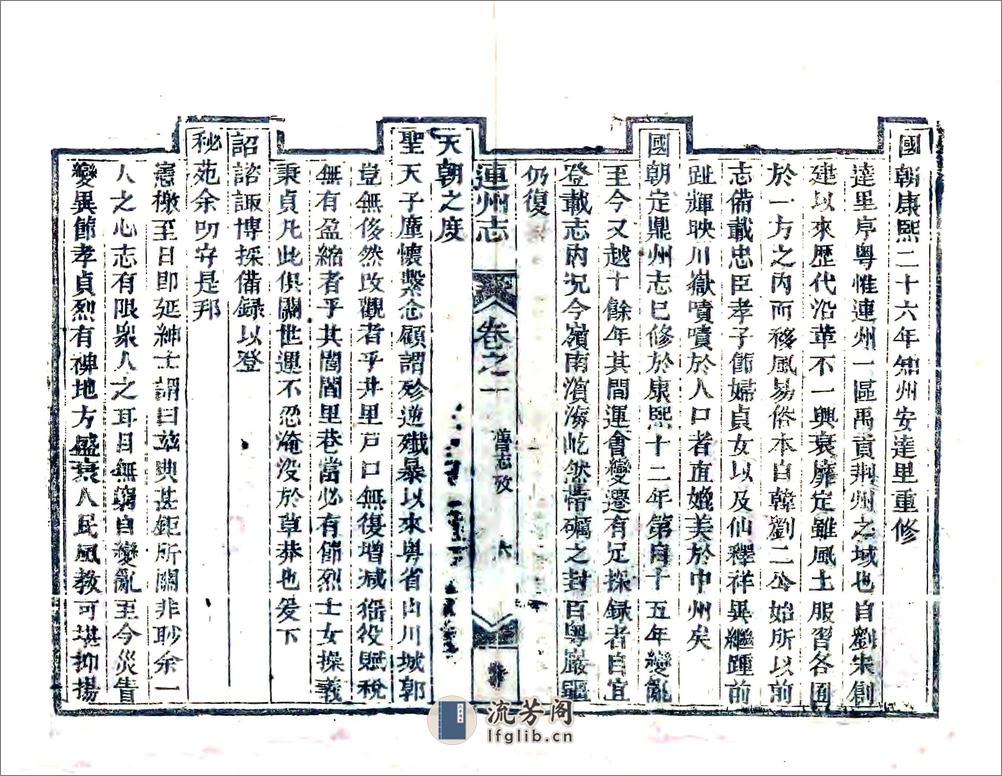 國朝康熙二十六年知州安達里重修
達里序粤惟連州一區禹貢荆州之域也自劉宋創
建以來歷代沿革不一興衰靡定雖風土服習各囿
於一方之内而移風易俗本自韓劉二公始所以前
志備載忠臣孝子節婦貞女以及仙釋祥異繼踵前
趾輝映川嶽嘖嘖於人口者直媲美於中州矣
國朝定鼎州志已修於康熙十二年第自十五年變亂
至今又越十餘年其間運會變遷有足採録者自宜
登載志内况今嶺南濱海屹然帶礪之封百粤巖疆
仍復
連州志 卷之一 舊志攷 六
天朝之度
聖天子塵懷繫念顧謂殄逆殱暴以來粤省山川城郭
豈無後然改觀者乎井里戸口無復增減徭役賦稅
無有盈縮者乎其閭閻里巷當必有節烈士女操義
秉貞凡此俱關世運不忍淹没於草莽也爰下
詔諮諏博採備録以登
秘苑余叨守是邦
憲檄至日即延紳士謂曰玆典甚鉅所關非眇余一
人之心志有限衆人之耳目無窮自變亂至今災眚
變異節孝貞烈有裨地方盛衰人民風教可堪抑揚
流芳阁
lfglib.cn